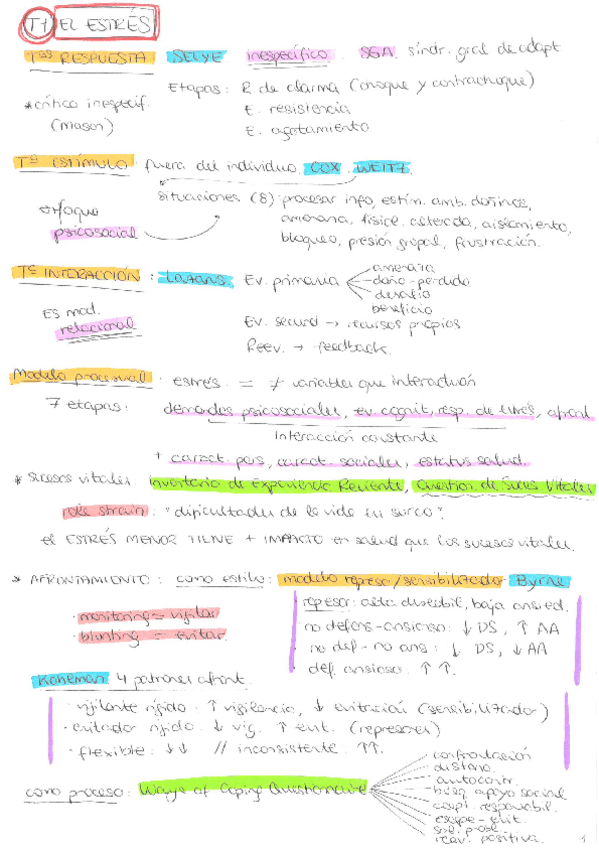 T7 EL ESTRÉS
Tªs RESPUESTA SELYE inespecífico. SGA. síndr. gral de adapt
Etapas: R. de alarma (choque y contrachoque)
*crítica inespecif. E. resistencia
(Mason) E. agotamiento.
Tª ESTÍMULO: fuera del individuo. COX. WEITZ.
situaciones (8): procesar info, estím. amb. dañinos,
enfoque amenaza, fisiol. alterada, aislamiento,
psicosocial bloqueo, presión grupal, frustración.
Tª INTERACCIÓN: Lazarus. Ev. primaria
amenaza
daño-pérdida
desafío
beneficio
Es mod. Ev. secund → recursos propios
relacional Reev. → feedback.
Modelo procesual: estrés = 7 variables que interactúan
7 etapas: demandas psicosociales, ev. cognit, resp. de estrés, afront
Interacción constante
+ caract. pers, caract. sociales, estatus salud.
* sucesos vitales Inventario de Experiencia Reciente, Cuestion de Suces Vitales
role strain: "dificultades de la vida en surco".
el ESTRÉS MENOR TIENE + IMPACTO en salud que los sucesos vitales.
* AFRONTAMIENTO: como estilo: modelo represor/sensibilizador Byrne
· monitoring = vigilar
· blunting = evitar.
represor: alta deseabil, baja ansied.
no defens-ansioso: ↓ DS, ↑ AA
no def - no ans: ↓ DS, ↓ AA
def. ansioso: ↑ ↑.
4 patrones afront.
· vigilante rígido: ↑ vigilancia, ↓ evitación (sensibilizador)
· evitador rígido: ↓ vig. ↑ evit. (represor)
· flexible: ↓↓ // inconsistente: ↑↑.
como proceso: Ways of Coping Questionnaire
confrontación
distanc.
autocontr
busq apoyo social
acept. responsabil.
escape-evit.
sol. probl.
reev. positiva.